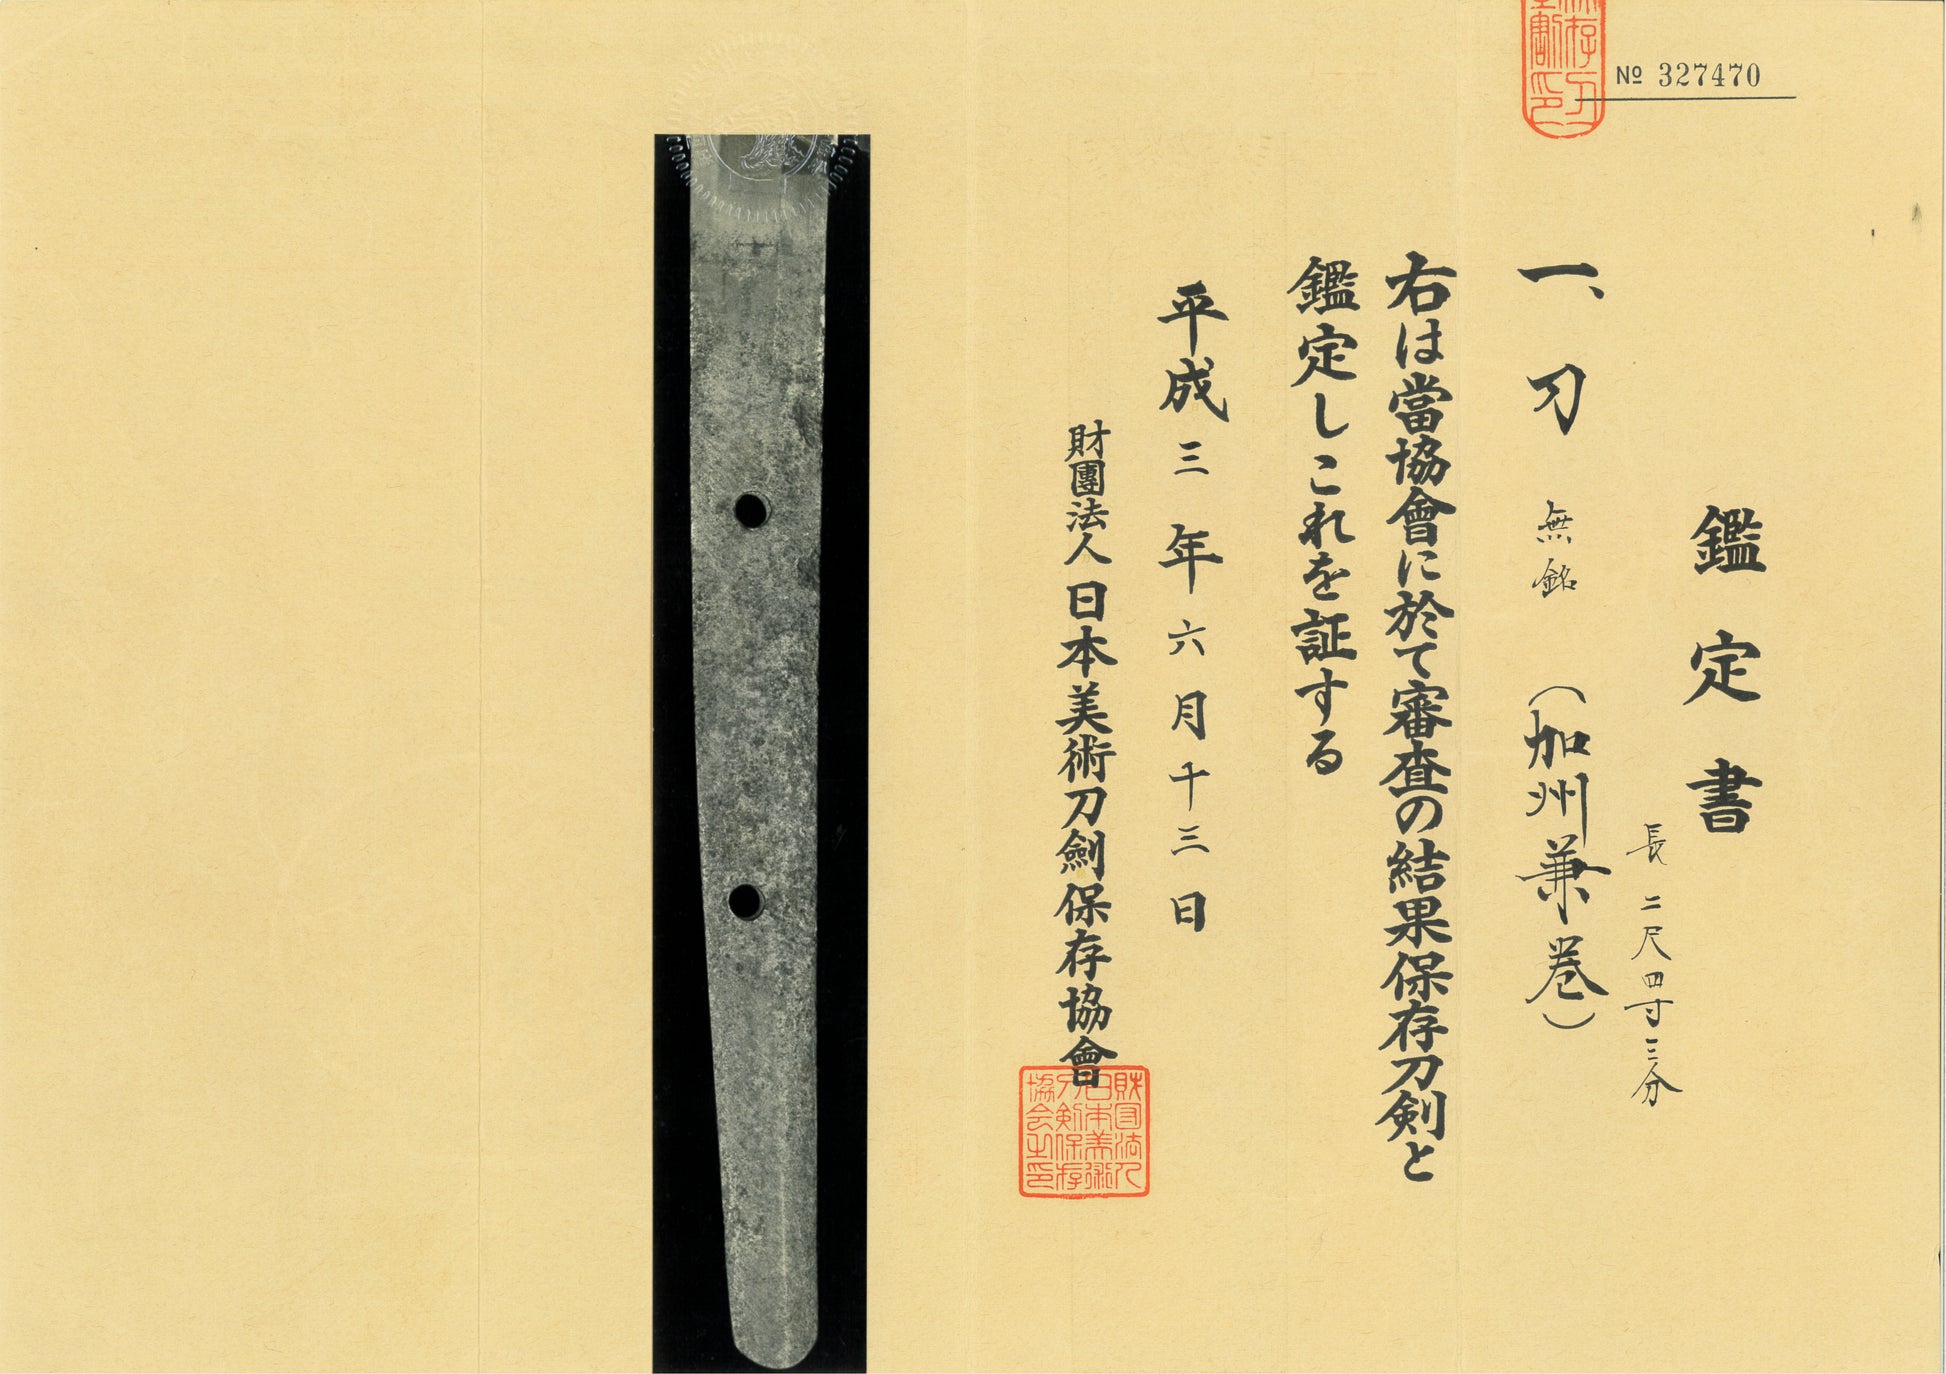 № 327470
鑑定書
長 二尺四寸三分
一、刀 無銘 (加州兼巻)
右は當協會に於て審査の結果保存刀剣と
鑑定しこれを証する
平成三年六月十三日
財團法人日本美術刀劍保存協會
財団法人
日本美術
刀剣保存
協会之印